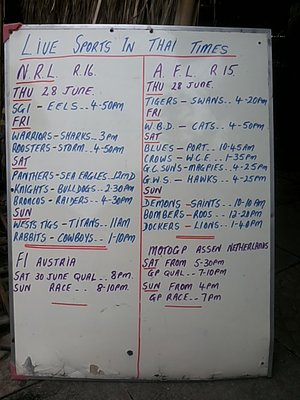 LIVE SPORTS IN THAI TIMES
N.R.L. R.16.
THU 28 JUNE.
SGI - EELS.. 4-50PM
FRI
WARRIORS - SHARKS.. 3PM
ROOSTERS - STORM.. 4-50PM
SAT
PANTHERS - SEA EAGLES.. 12MD
KNIGHTS - BULLDOGS.. 2-30PM
BRONCOS - RAIDERS.. 4-30PM
SUN
WESTS TIGS - TITANS.. 11AM
RABBITS - COWBOYS... 1-10PM
F1 AUSTRIA
SAT 30 JUNE QUAL.. 8PM.
SUN RACE... 8-10PM.
A.F.L. R15.
THU 28 JUNE.
TIGERS - SWANS.. 4-20PM
FRI
W.B.D. - CATS.. 4-50PM
SAT
BLUES - PORT.. 10-45AM
CROWS - W.C.E.. 1-35PM
G.C. SUNS - MAGPIES.. 4-25PM
G.W.S. - HAWKS.. 4-25PM
SUN
DEMONS - SAINTS.. 10-10AM
BOMBERS - ROOS... 12-20PM
DOCKERS - LIONS.. 1-40PM
MOTOGP ASSEN NETHERLANDS
SAT FROM 5-30PM
GP QUAL.. 7-10PM
SUN FROM 4PM
GP RACE.. 7PM